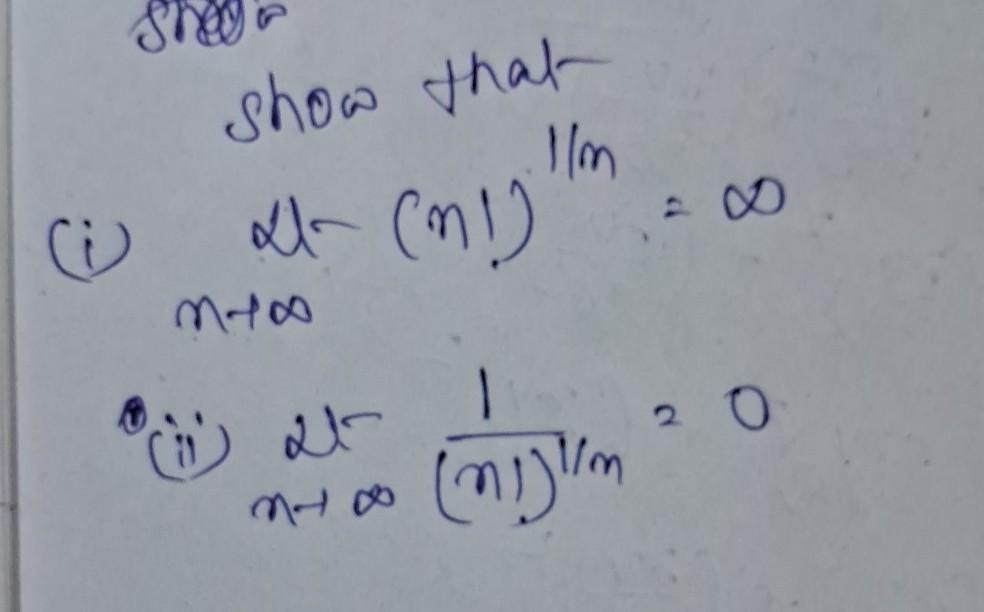 show that
(i) Lt (n!)^{1/n} = ∞
n→∞
(ii) Lt 1/(n!)^{1/n} = 0
n→∞